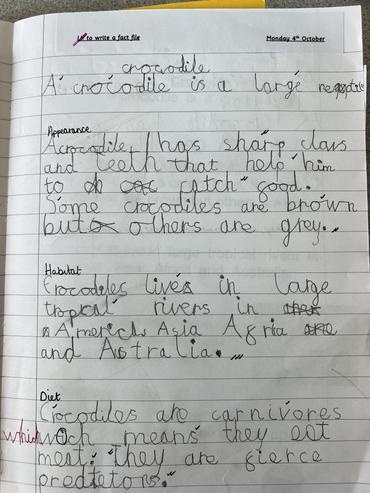 LO to write a fact file Monday 4th October
crocodile
A crocodile is a large
Appearance
A crocodile has sharp claws
and teeth that help him
to catch good.
Some crocodiles are brown
but others are grey.
Habitat
Crocodiles lives in large
tropical rivers in
America, Asia Afria
and Astralia.
Diet
Crocodiles are carnivores
which wich means they eat
meat. they are fierce
predetors.